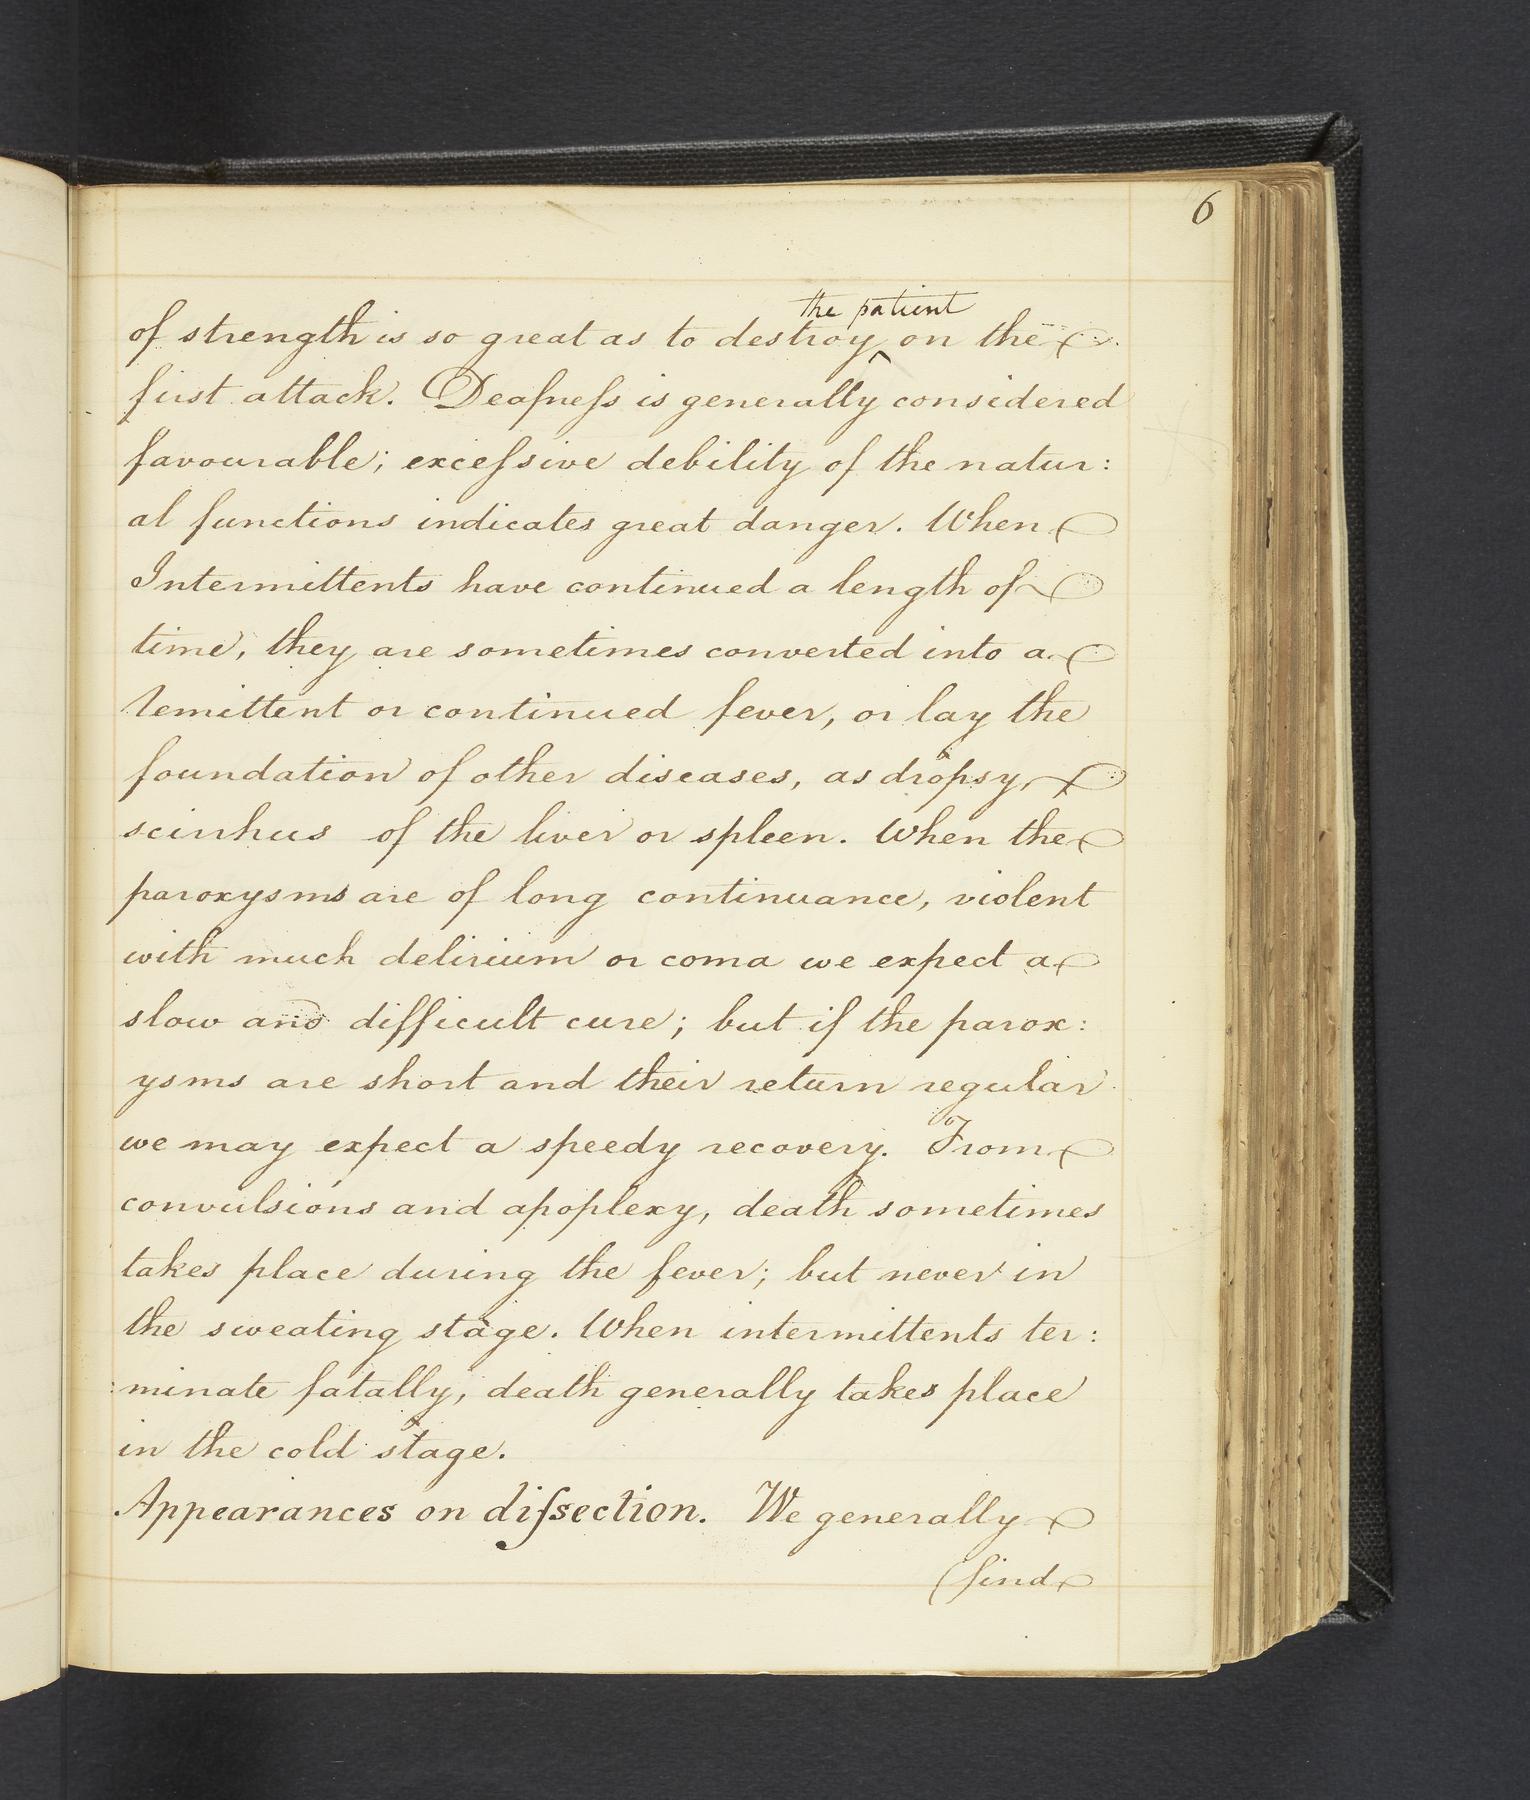 6
the patient
of strength is so great as to destroy ‸ on the
first attack. Deafneſs is generally considered
favourable; exceſsive debility of the natur:
al functions indicates great danger. When
Intermittents have continued a length of
time, they are sometimes converted into a
remittent or continued fever, or lay the
foundation of other diseases, as dropsy,
scirrhus of the liver or spleen. When the
paroxysms are of long continuance, violent
with much delirium or coma we expect a
slow and difficult cure; but if the parox:
ysms are short and their return regular
we may expect a speedy recovery. From
convulsions and apoplexy, death sometimes
takes place during the fever; but never in
the sweating stage. When intermittents ter:
:minate fatally, death generally takes place
in the cold stage.
Appearances on diſsection. We generally
(find